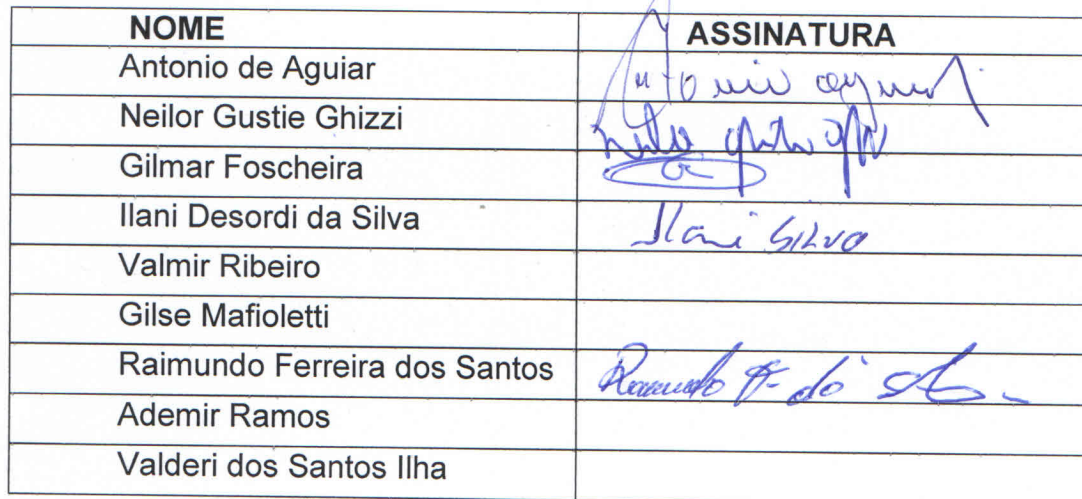 NOME ASSINATURA
Antonio de Aguiar Antonio
Neilor Gustie Ghizzi
Gilmar Foscheira
Ilani Desordi da Silva Ilani Silva
Valmir Ribeiro
Gilse Mafioletti
Raimundo Ferreira dos Santos Raimundo F. do
Ademir Ramos
Valderi dos Santos Ilha